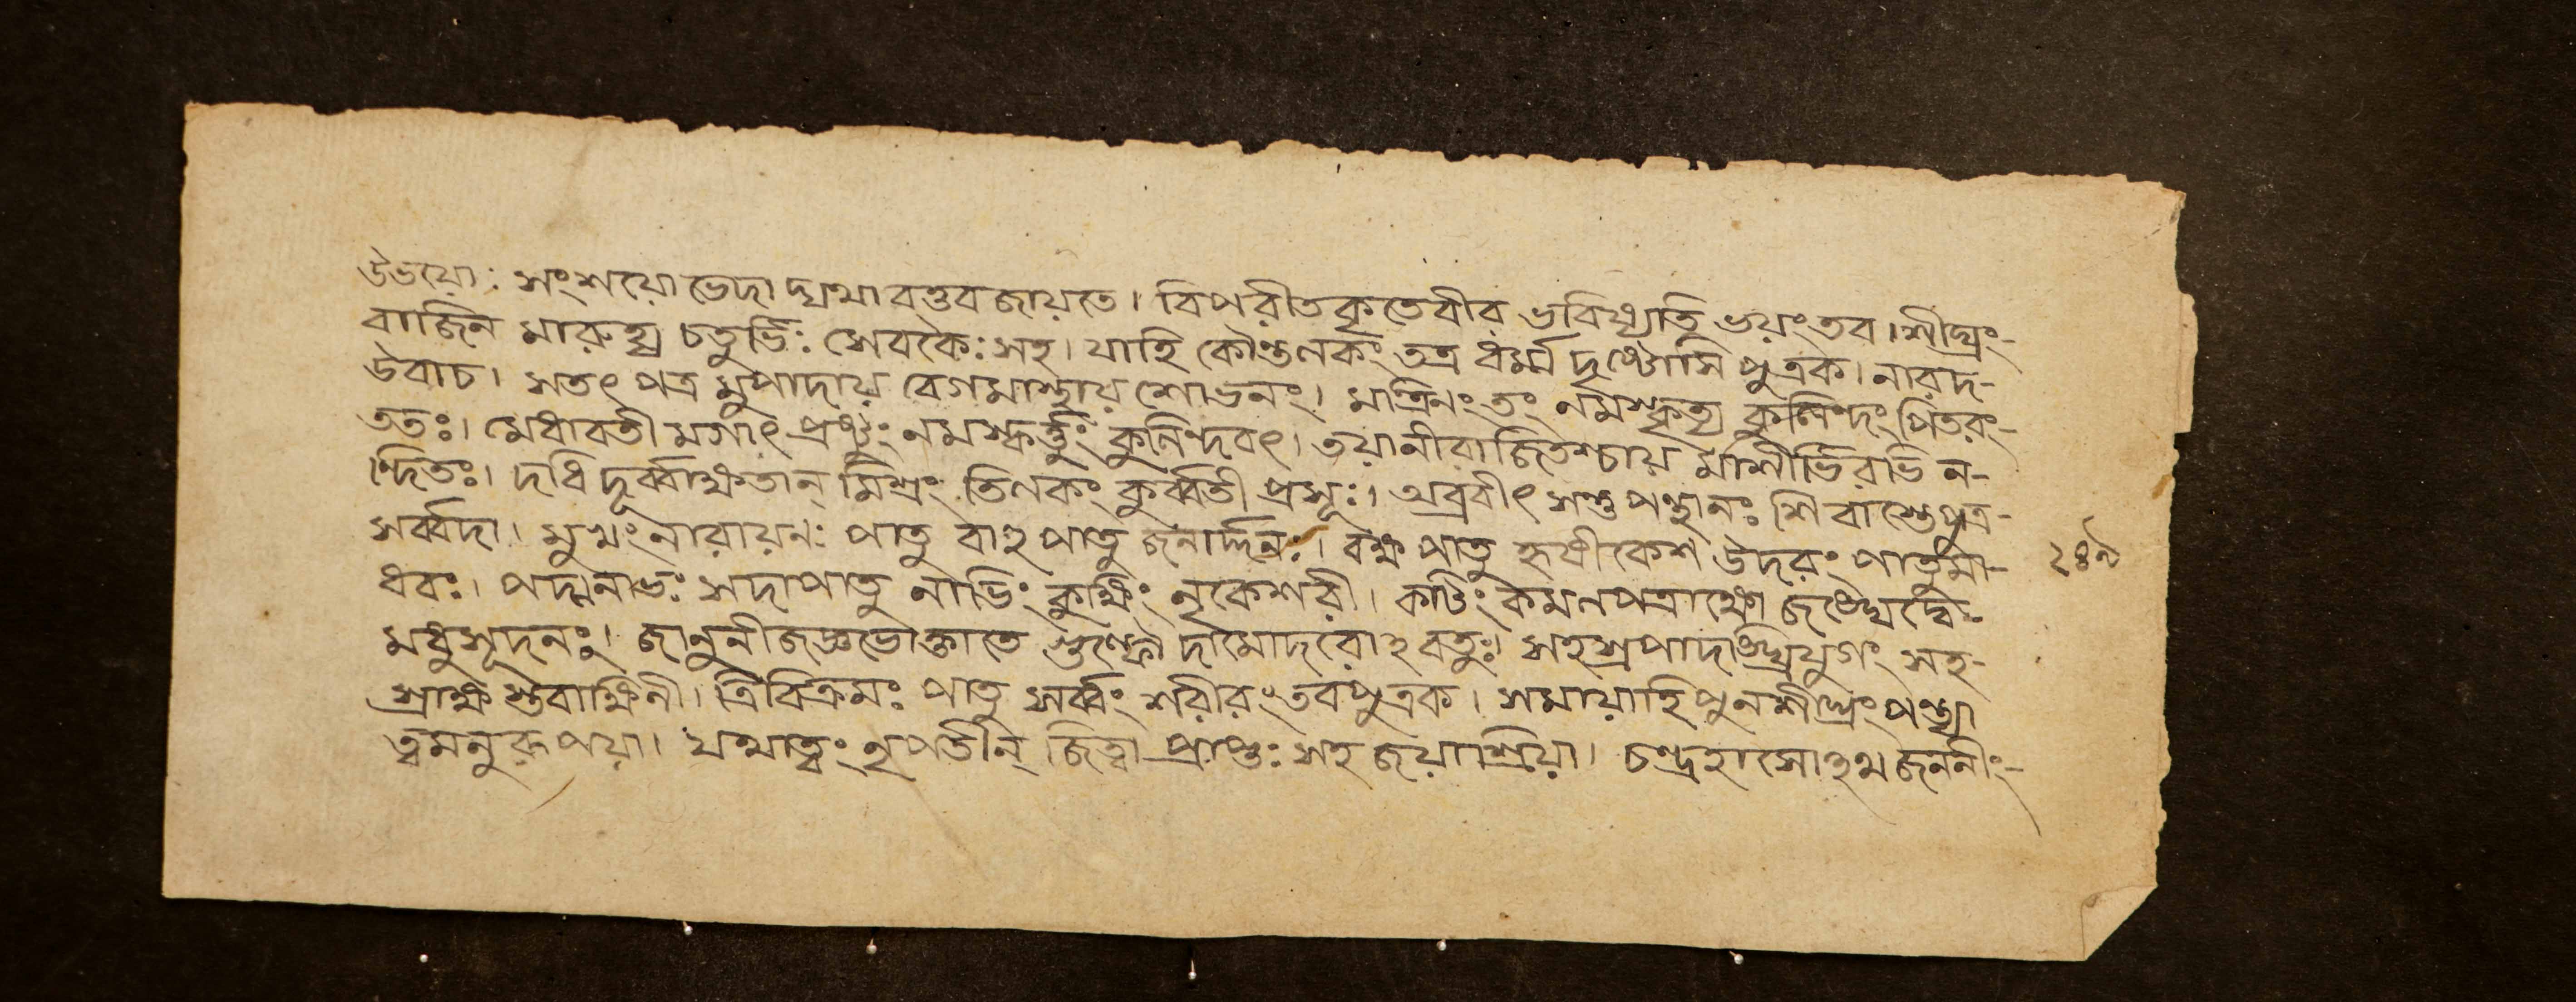 উভয়োঃ সংশয়ো ভেদা দ্যথাবত্তব জায়তে। বিপরীতকৃতেবীর ভবিষ্যতি ভয়ং তব। শীঘ্রং-
বাজিন মারুহ্য চতুর্ভিঃ সেবকৈঃ সহ। যাহি কৌন্তলকং তত্র ধর্ম্ম দৃষ্টোসি পুত্রক। নারদ-
উবাচ। সতৎ পত্র মুপাদায় বেগমাস্থায় শোভনং। মাত্রিনং তং নমস্কৃত্য কুলিন্দং পিতরং-
ততঃ। মেধাবতী মগাৎ প্রষ্টুং নমস্কর্ত্তুং কুলিন্দবৎ। তয়ানীরাজিতশ্চায় মাশীর্ভিরভি ন-
ন্দিতঃ। দধি দূর্ব্বাক্ষতান্ মিশ্রং তিলকং কুর্ব্বতী প্রসূঃ। অব্রবীৎ সন্তু পন্থানঃ শিবাস্তেপুত্র-
সর্ব্বদা। মুখং নারায়নঃ পাতু বাহু পাতু জনার্দ্দনঃ। বক্ষ পাতু হৃষীকেশ উদরং পাতুমা-
ধবঃ। পদ্মনাভঃ সদাপাতু নাভিং কুক্ষিং নৃকেশরী। কটিং কমলপত্রাক্ষো জঙ্ঘেদ্বে-
মধুসূদনঃ। জানুনীজগ্রভোক্তাতে গুল্ফৌ দামোদরোহবতুঃ। সহস্রপাদাঙ্ঘ্রিযুগং সহ-
স্রাক্ষ স্তবাক্ষিনী। ত্রিবিক্রমঃ পাতু সর্ব্বং শরীরং তবপুত্রক। সমায়াহি পুনশীঘ্রং পন্থ্যা
ত্বমনুরূপয়া। যথাত্বং নৃপতীন্ জিত্বা প্রাপ্তঃ সহ জয়াশ্রিয়া। চন্দ্রহাসোহথ জননীং-